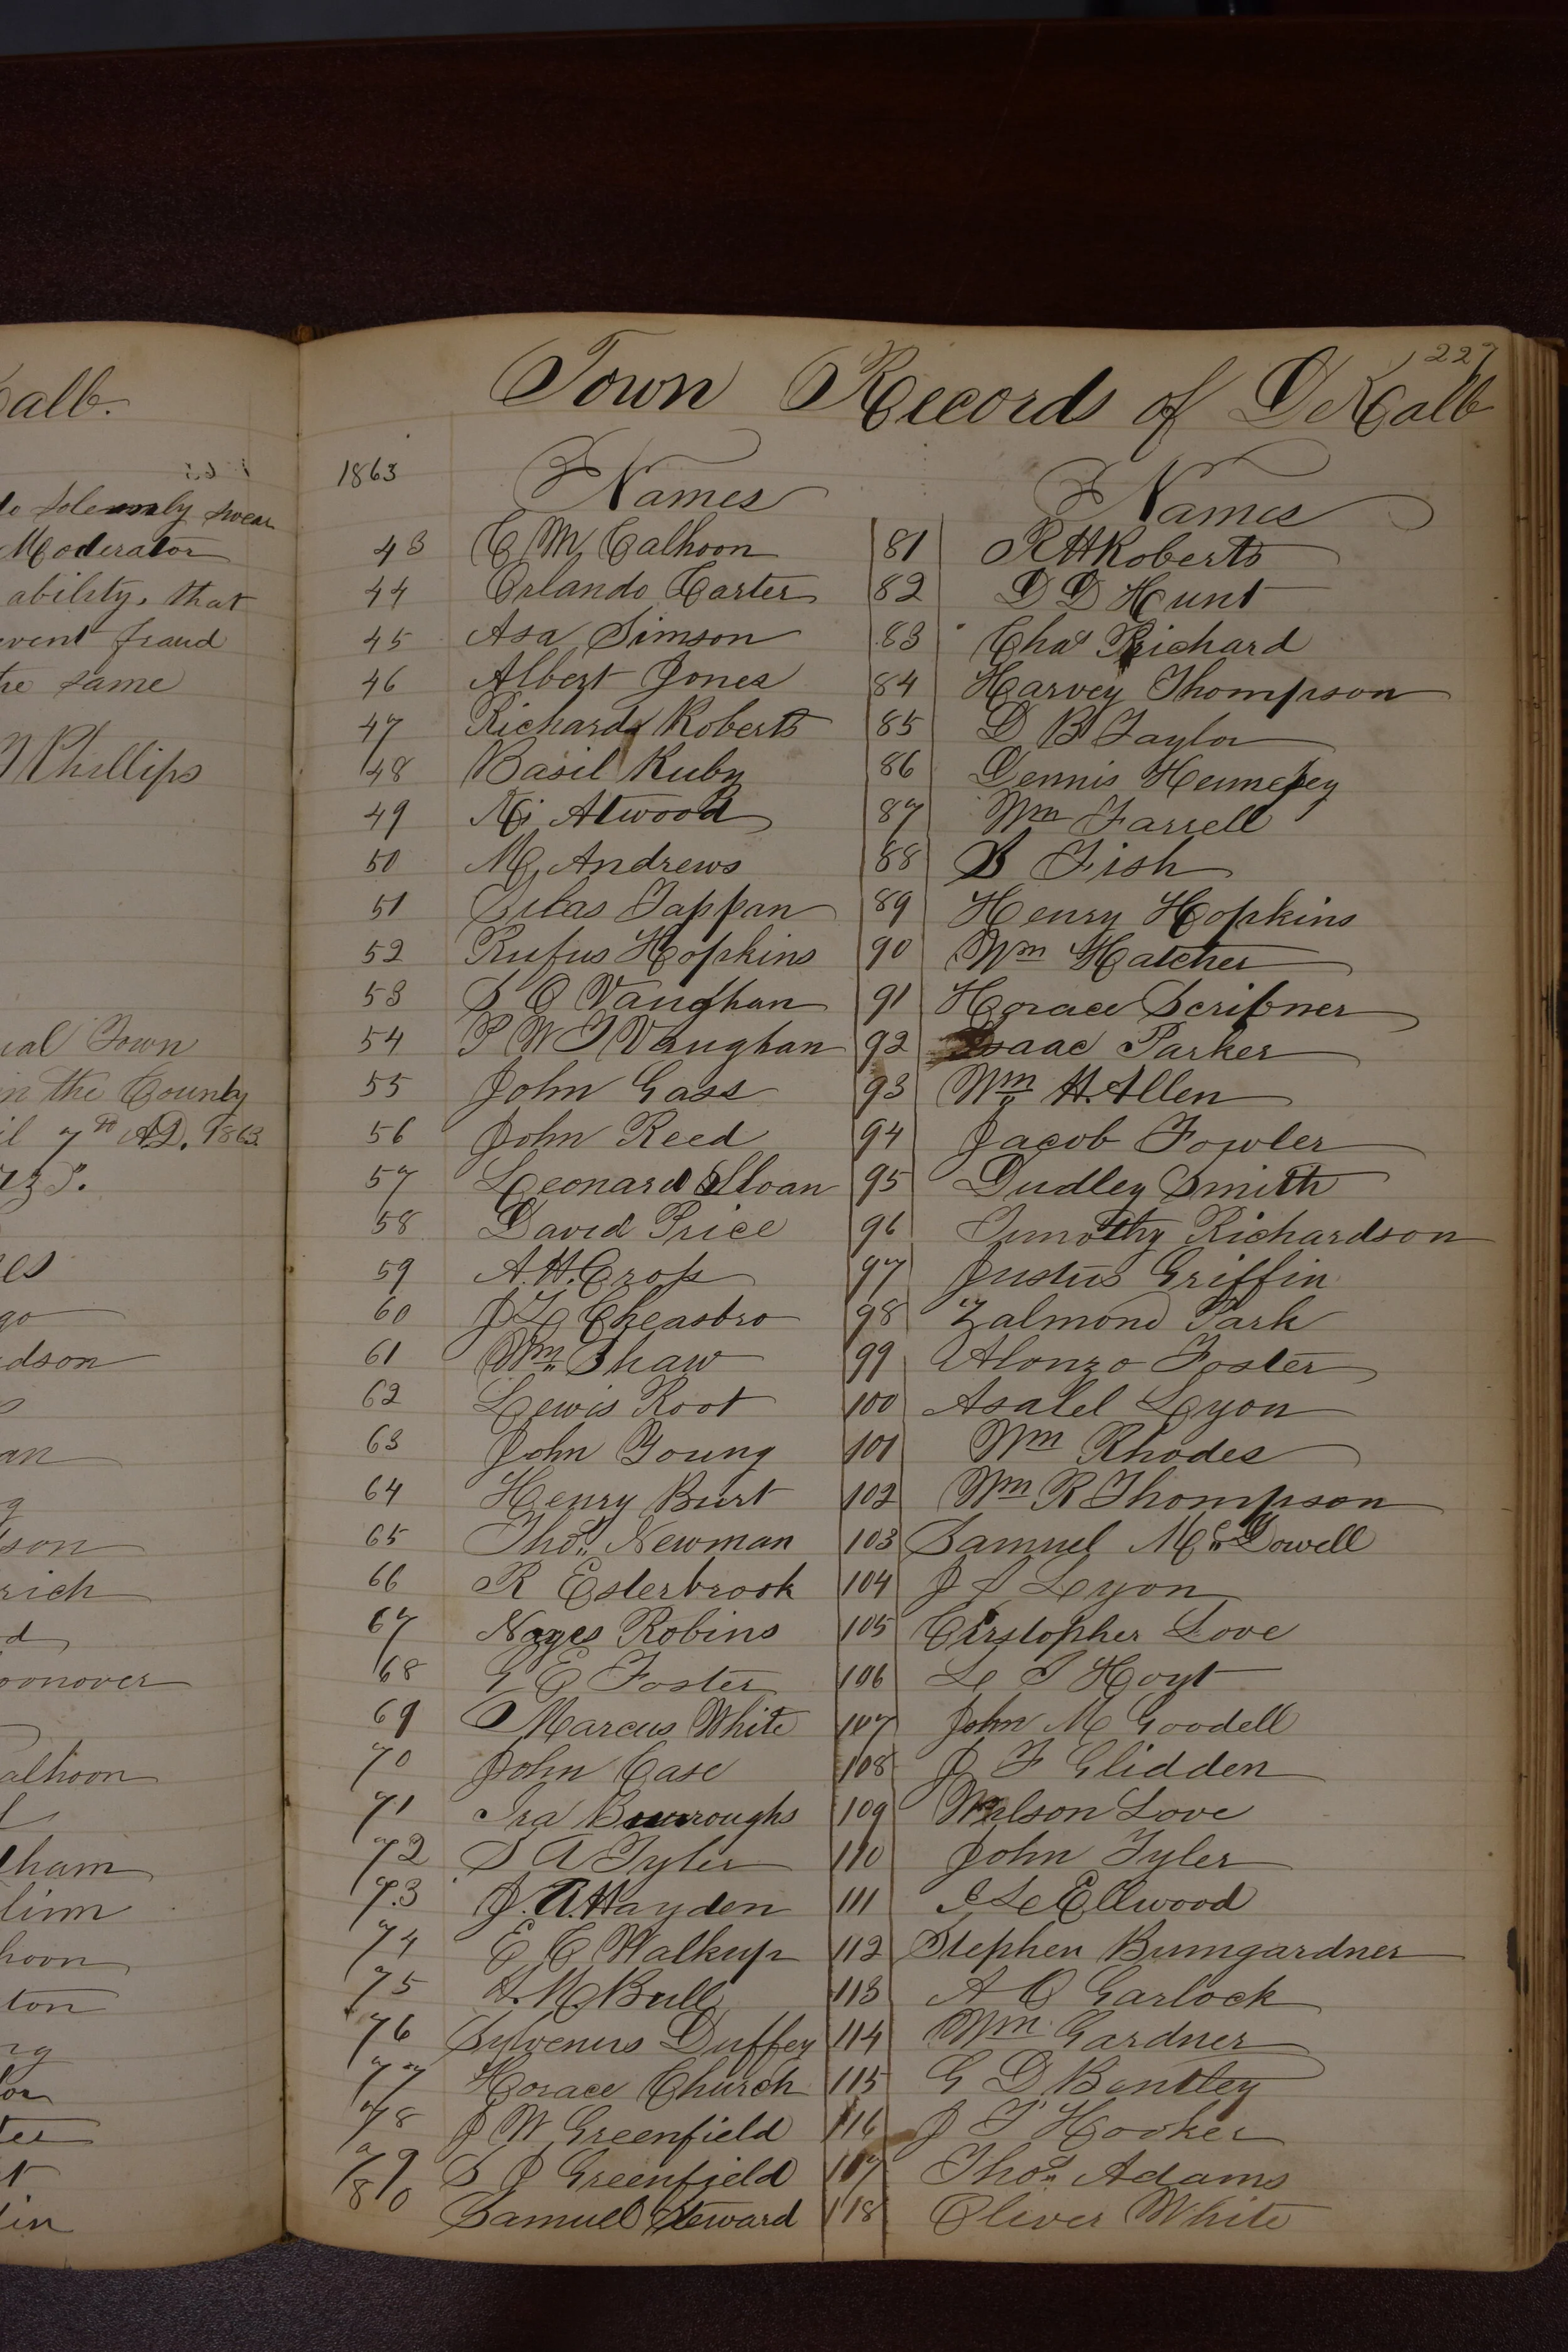 alb.
solemnly swear
Moderator
ability, that
fraud
same
Phillips
Town
in the County
7th AD. 1863.
dson
an
son
rich
d
oonover
alhoon
ham
linn
hoon
ton
227
Town Records of DeKalb
1863 Names Names
43 C M Calhoon 81 R H Roberts
44 Orlando Carter 82 D D Hunt
45 Asa Simson 83 Chas Richard
46 Albert Jones 84 Harvey Thompson
47 Richard Roberts 85 D B Taylor
48 Basil Ruby 86 Dennis Hennesey
49 Atwood 87 Wm Farrell
50 M Andrews 88 B Fish
51 Silas Tappan 89 Henry Hopkins
52 Rufus Hopkins 90 Wm Hatcher
53 S O Vaughan 91 Horace Scribner
54 P W T Vaughan 92 Isaac Parker
55 John Gass 93 Wm H Allen
56 John Reed 94 Jacob Fowler
57 Leonard Sloan 95 Dudley Smith
58 David Price 96 Timothy Richardson
59 A. H. Crop 97 Justus Griffin
60 J L Cheasbro 98 Zalmond Park
61 Wm Shaw 99 Alonzo Foster
62 Lewis Root 100 Asalel Lyon
63 John Young 101 Wm Rhodes
64 Henry Burt 102 Wm R Thompson
65 Thos Newman 103 Samuel Mc Dowell
66 R Esterbrook 104 J S Lyon
67 Noyes Robins 105 Cirstopher Love
68 G E Foster 106 L T Hoyt
69 Marcus White 107 John M Goodell
70 John Case 108 J F Glidden
71 Ira Burroughs 109 Wilson Love
72 S A Tyler 110 John Tyler
73 J. A. Hayden 111 I L Ellwood
74 E C Walkup 112 Stephen Bumgardner
75 H. M Bull 113 A O Garlock
76 Sylvenus Duffey 114 Wm Gardner
77 Horace Church 115 G D Bentley
78 J W Greenfield 116 J T Hooker
79 S J Greenfield 117 Thos Adams
80 Samuel Steward 118 Oliver White